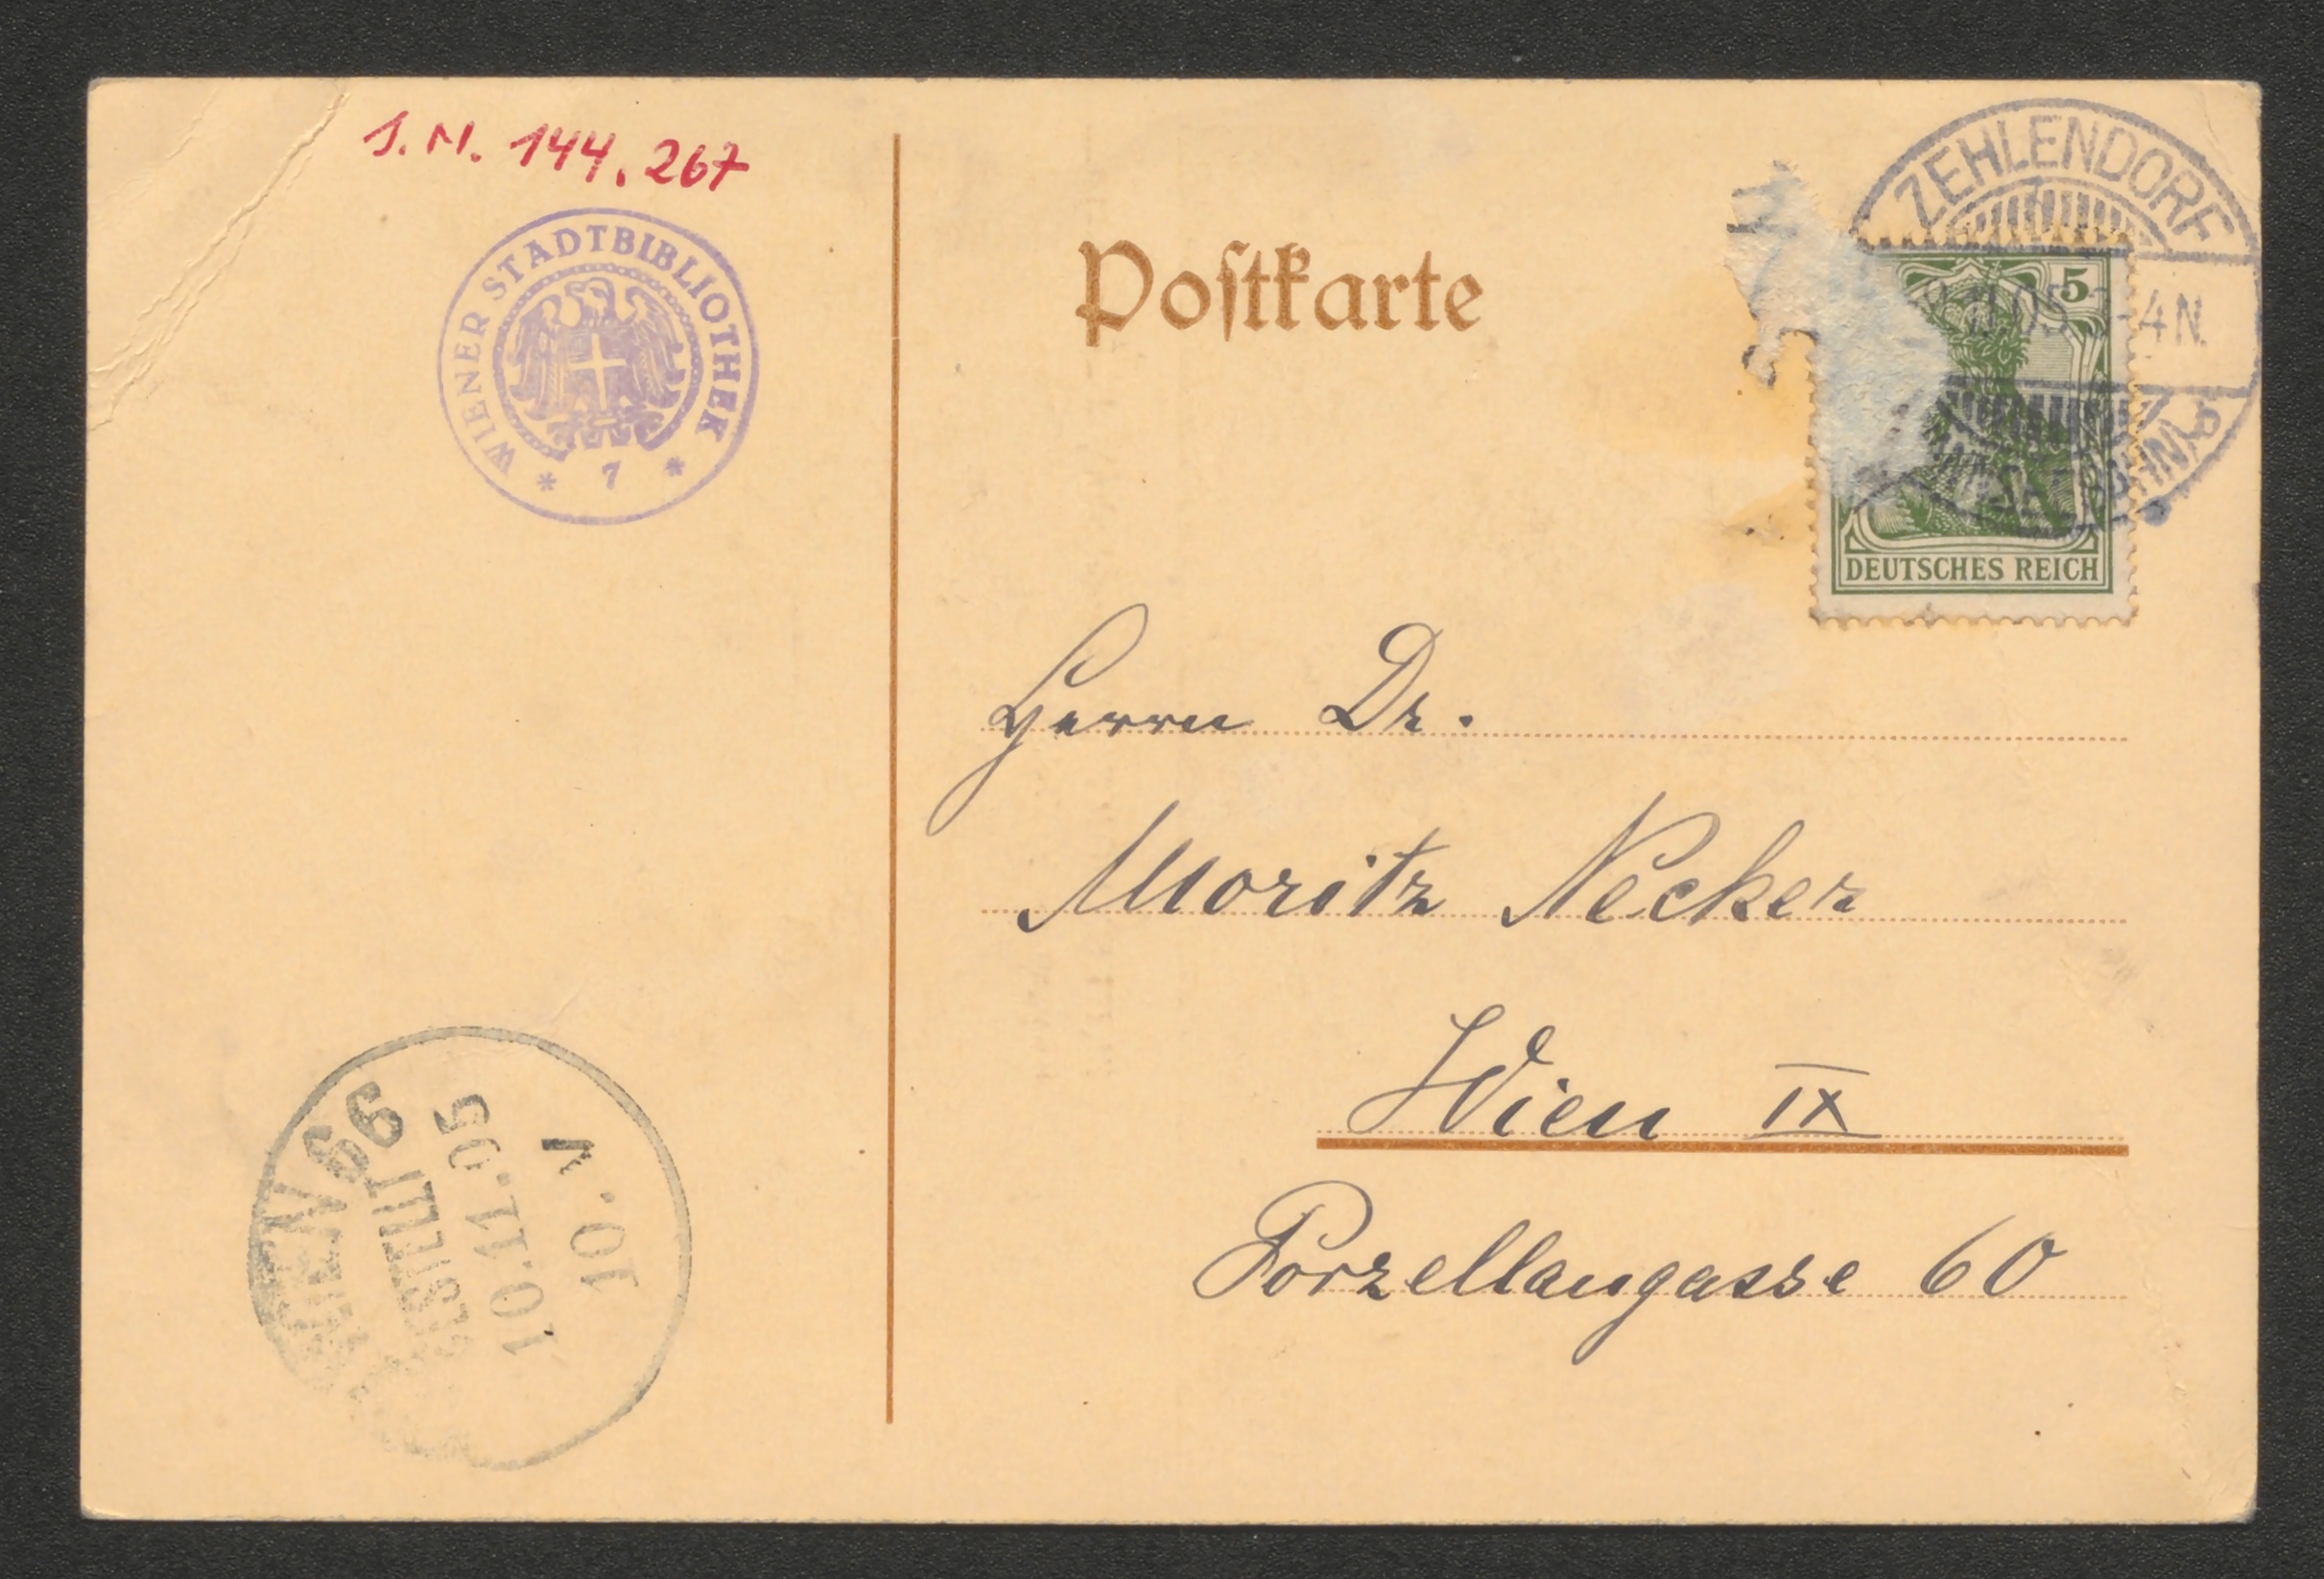 J. N. 144.267
WIENER STADTBIBLIOTHEK
* 7 *
Postkarte
ZEHLENDORF
4 N.
5
DEUTSCHES REICH
Herrn Dr.
Moritz Necker
Wien IX
Porzellangasse 60
WIEN 66
BESTELLT
10.11.05
10. V